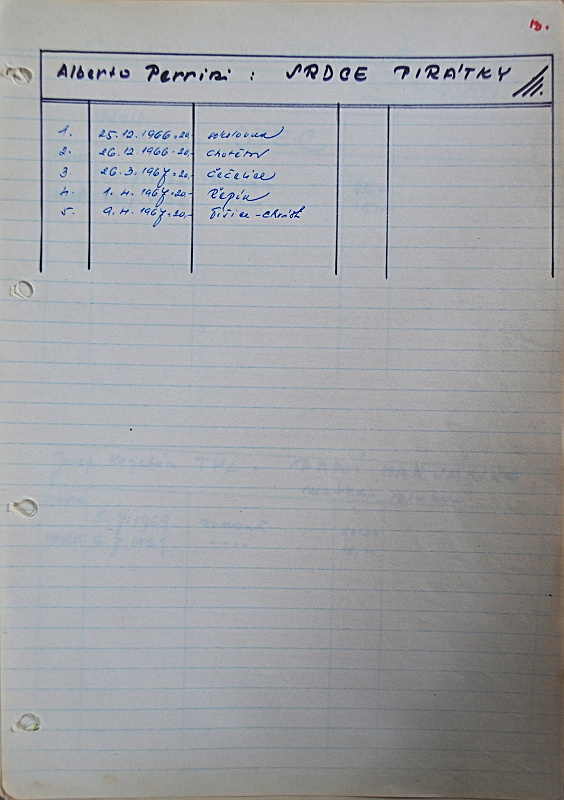 18.
Alberto Perrini : SRDCE PIRÁTKY
1. 25.12.1966 - 20,- sokolovna
2. 26.12.1966 - 20,- Chotětov
3 26.3.1967 - 20,- Čečelice
4. 1.4.1967 - 20,- Řepín
5. 9.4.1967 - 20,- Tišice - Chrást